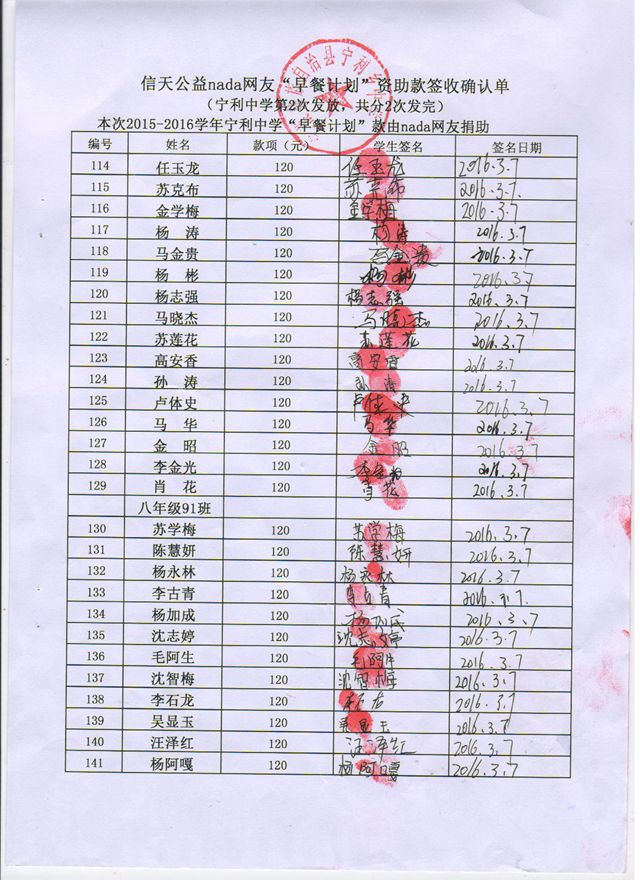 信天公益nada网友“早餐计划”资助款签收确认单
（宁利中学第2次发放，共分2次发完）
本次2015-2016学年宁利中学“早餐计划”款由nada网友捐助
编号 姓名 款项（元） 学生签名 签名日期
114 任玉龙 120 任玉龙 2016.3.7
115 苏克布 120 苏克布 2016.3.7.
116 金学梅 120 金学梅 2016.3.7
117 杨 涛 120 杨涛 2016.3.7
118 马金贵 120 马金贵 2016.3.7
119 杨 彬 120 杨彬 2016.3.7
120 杨志强 120 杨志强 2016.3.7
121 马晓杰 120 马晓杰 2016.3.7
122 苏莲花 120 苏莲花 2016.3.7
123 高安香 120 高安香 2016.3.7
124 孙 涛 120 孙涛 2016.3.7
125 卢体史 120 2016.3.7
126 马 华 120 马华 2016.3.7
127 金 昭 120 金昭 2016.3.7
128 李金光 120 2016.3.7
129 肖 花 120 肖花 2016.3.7
八年级91班
130 苏学梅 120 苏学梅 2016.3.7
131 陈慧妍 120 陈慧妍 2016.3.7
132 杨永林 120 杨永林 2016.3.7
133 李古青 120 2016.3.7.
134 杨加成 120 杨加成 2016.3.7
135 沈志婷 120 沈志婷 2016.3.7
136 毛阿生 120 毛阿生 2016.3.7
137 沈智梅 120 沈智梅 2016.3.7
138 李石龙 120 2016.3.7
139 吴显玉 120 吴显玉 2016.3.7
140 汪泽红 120 汪泽红 2016.3.7
141 杨阿嘎 120 杨阿嘎 2016.3.7